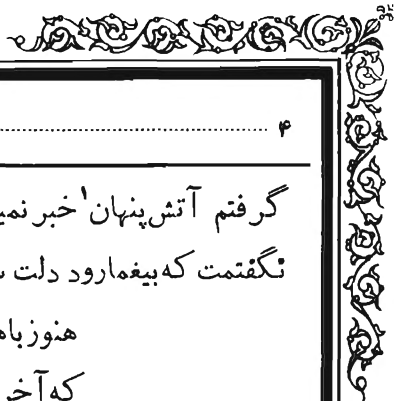 ۴
گرفتم آتش پنهان۱ خبر نمی
نگفتمت که بیغمارود دلت
هنوز با
که آخر